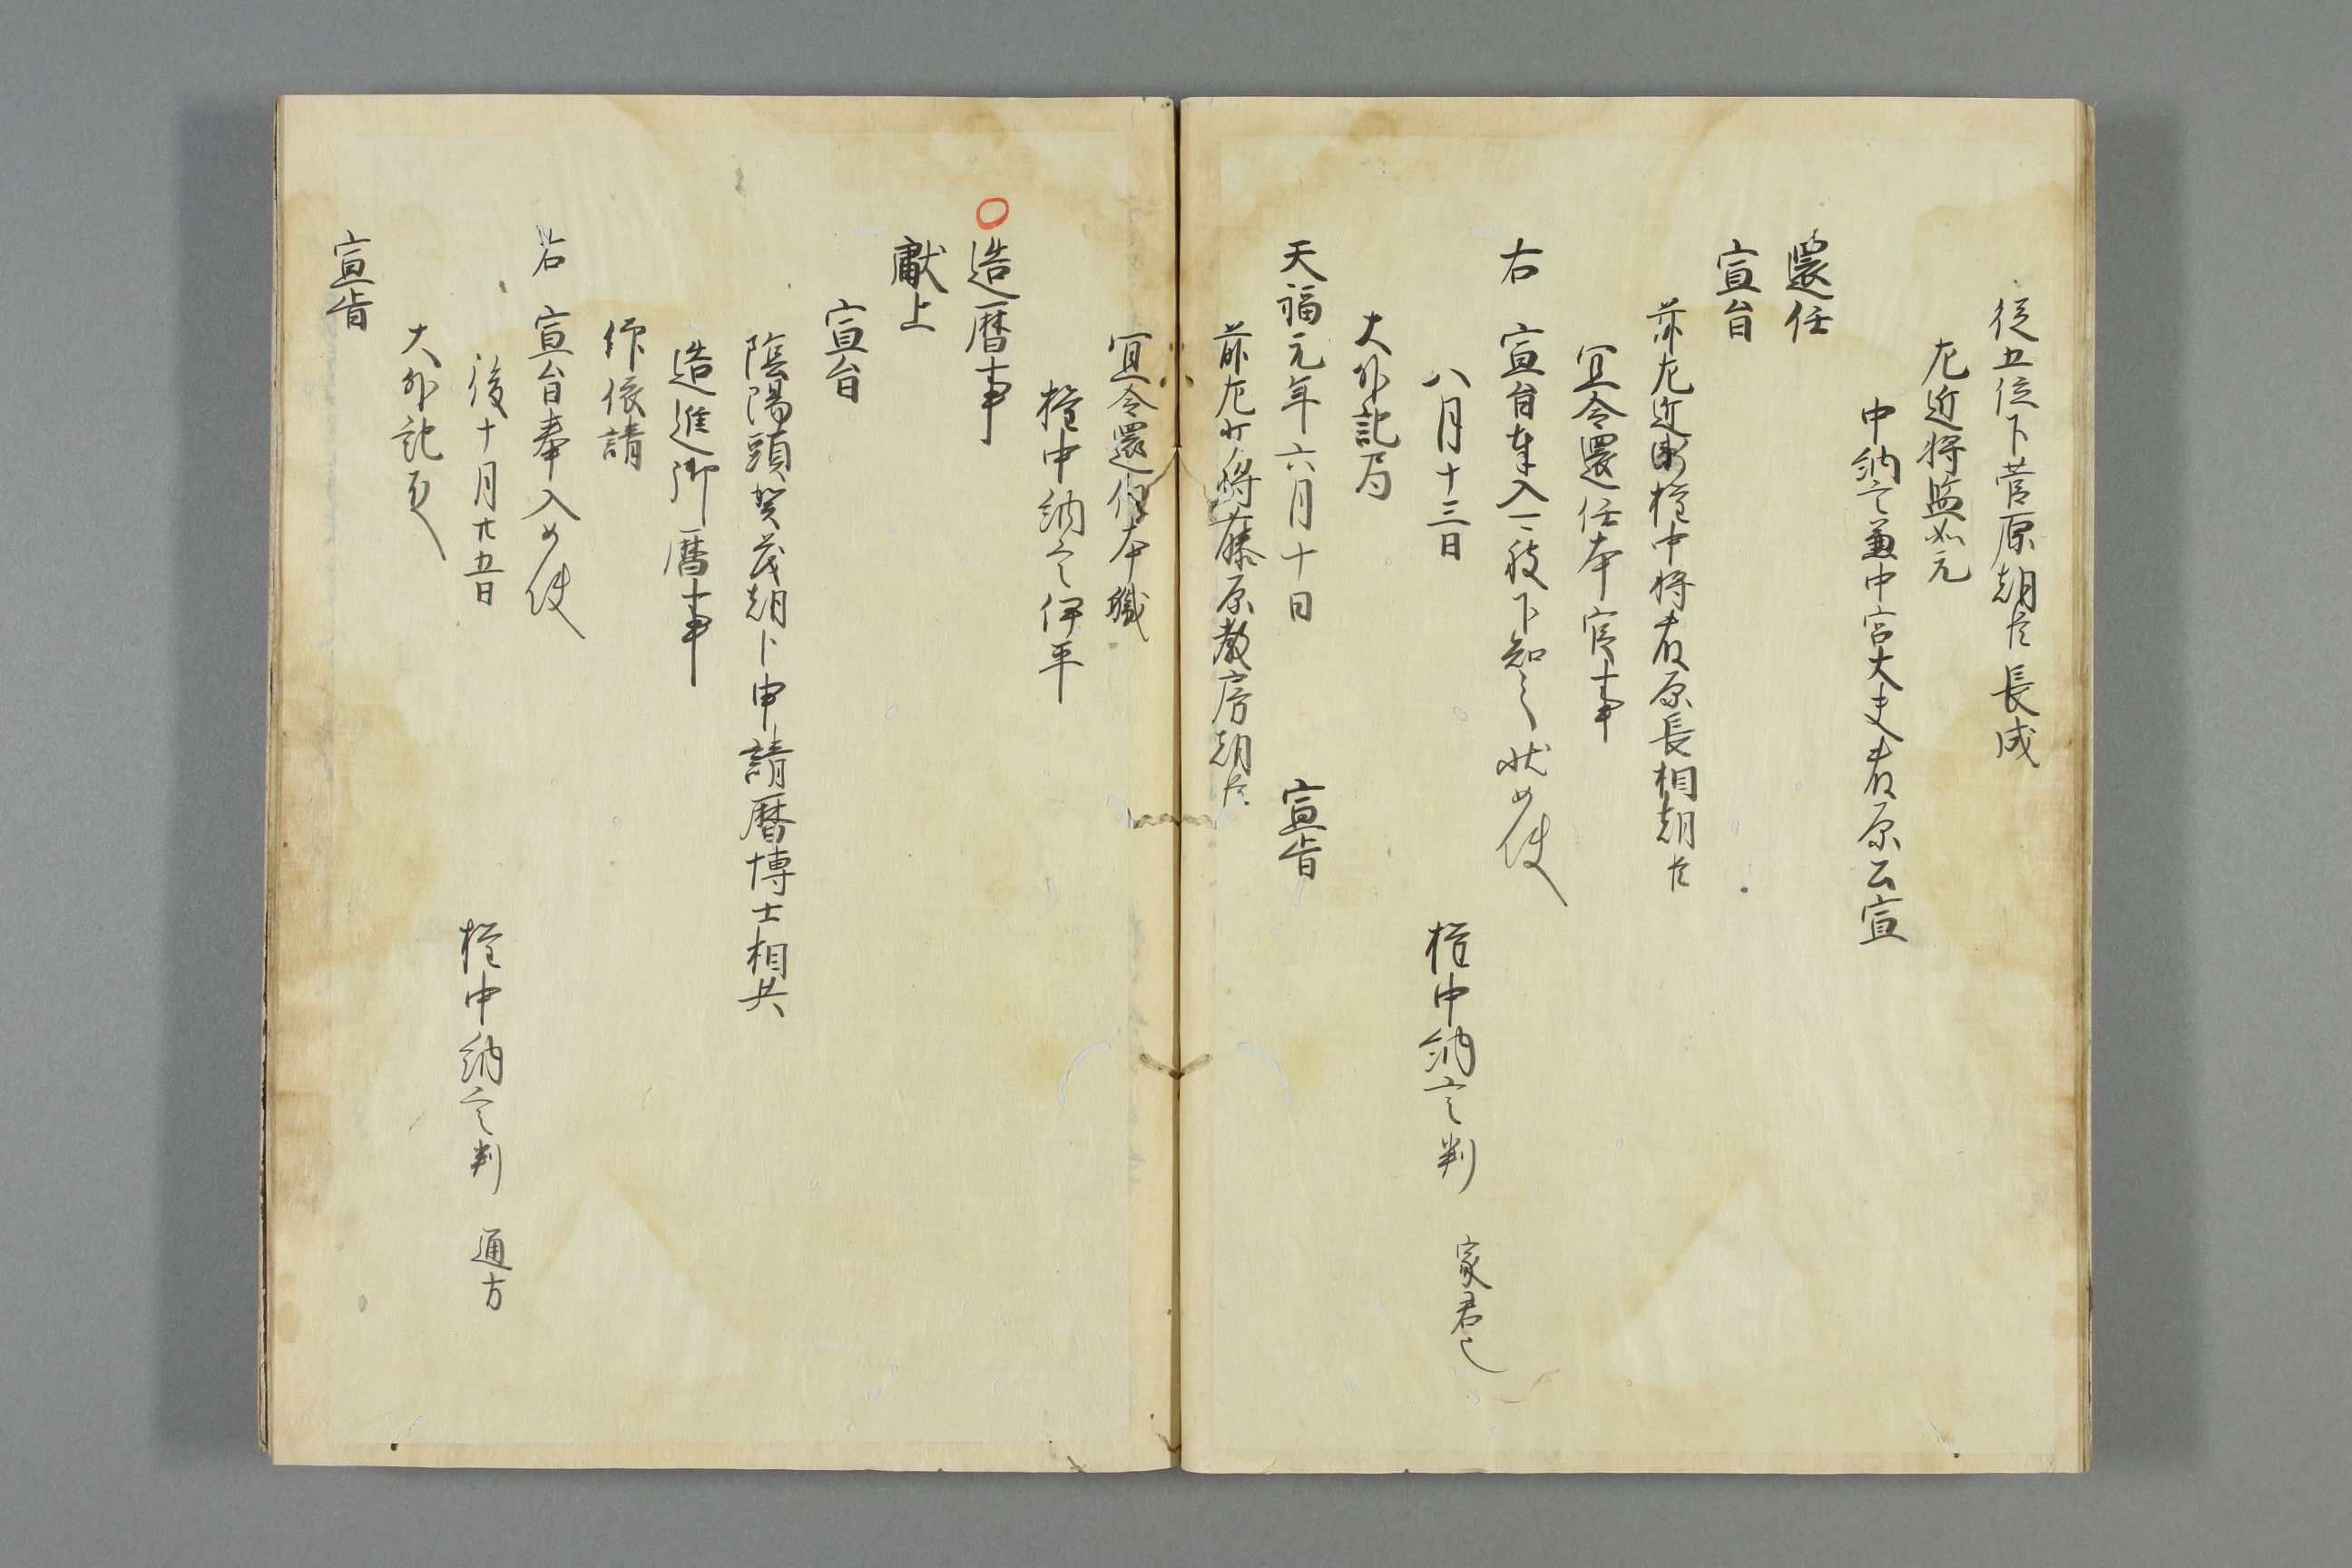 従五位下菅原朝臣長成
左近将監如元
中納言兼中宮大夫藤原公宣
還任
宣旨
前左近衛権中将藤原長相朝臣
宜令還任本官事
右 宣旨奉入 可被下知之状如件
八月十三日 権中納言判 家君也
大外記局
天福元年六月十日 宣旨
前左少将藤原教房朝臣
宜令還任本職
権中納言伊平
○造暦事
献上
宣旨
陰陽頭賀茂朝卜申請暦博士相共
造進御暦事
仰依請
右 宣旨奉入如件
後十月廿五日 権中納言判 通方
大外記殿
宣旨